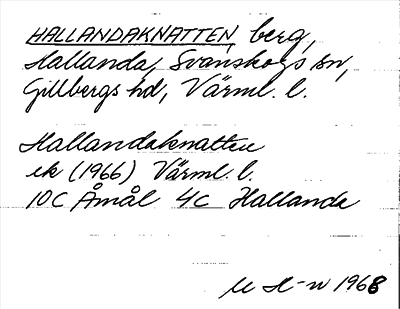 HALLANDAKNATTEN, berg,
Hallanda, Svanskogs sn,
Gillbergs hd, Värml. l.
Hallandaknatten
ek (1966) Värml. l.
10C Åmål 4c Hallanda
1968